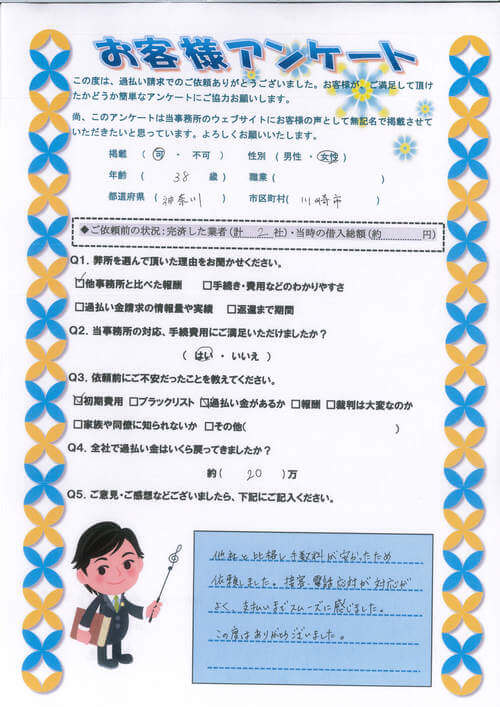 お客様アンケート
この度は、過払い請求でのご依頼ありがとうございました。お客様が、ご満足して頂け
たかどうか簡単なアンケートにご協力お願いします。
尚、このアンケートは当事務所のウェブサイトにお客様の声として無記名で掲載させて
いただきたいと思っています。よろしくお願いいたします。
掲載 ( 可 ・ 不可 ) 性別 ( 男性 ・ 女性 )
年齢 ( 38 歳 ) 職業 ( )
都道府県 ( 神奈川 ) 市区町村( 川崎市 )
◆ご依頼前の状況：完済した業者(計 2 社)・当時の借入総額(約 円)
Q1. 弊所を選んで頂いた理由をお聞かせください。
☑他事務所と比べた報酬 □手続き・費用などのわかりやすさ
□過払い金請求の情報量や実績 □返還まで期間
Q2. 当事務所の対応、手続費用にご満足いただけましたか？
( はい ・ いいえ )
Q3. 依頼前にご不安だったことを教えてください。
☑初期費用 □ブラックリスト ☑過払い金があるか □報酬 □裁判は大変なのか
□家族や同僚に知られないか □その他( )
Q4. 全社で過払い金はいくら戻ってきましたか？
約( 20 )万
Q5. ご意見・ご感想などございましたら、下記にご記入ください。
他社と比較し手数料が安かったため
依頼しました。接客・電話応対が対応が
よく、支払いまでスムーズに感じました。
この度はありがとうございました。